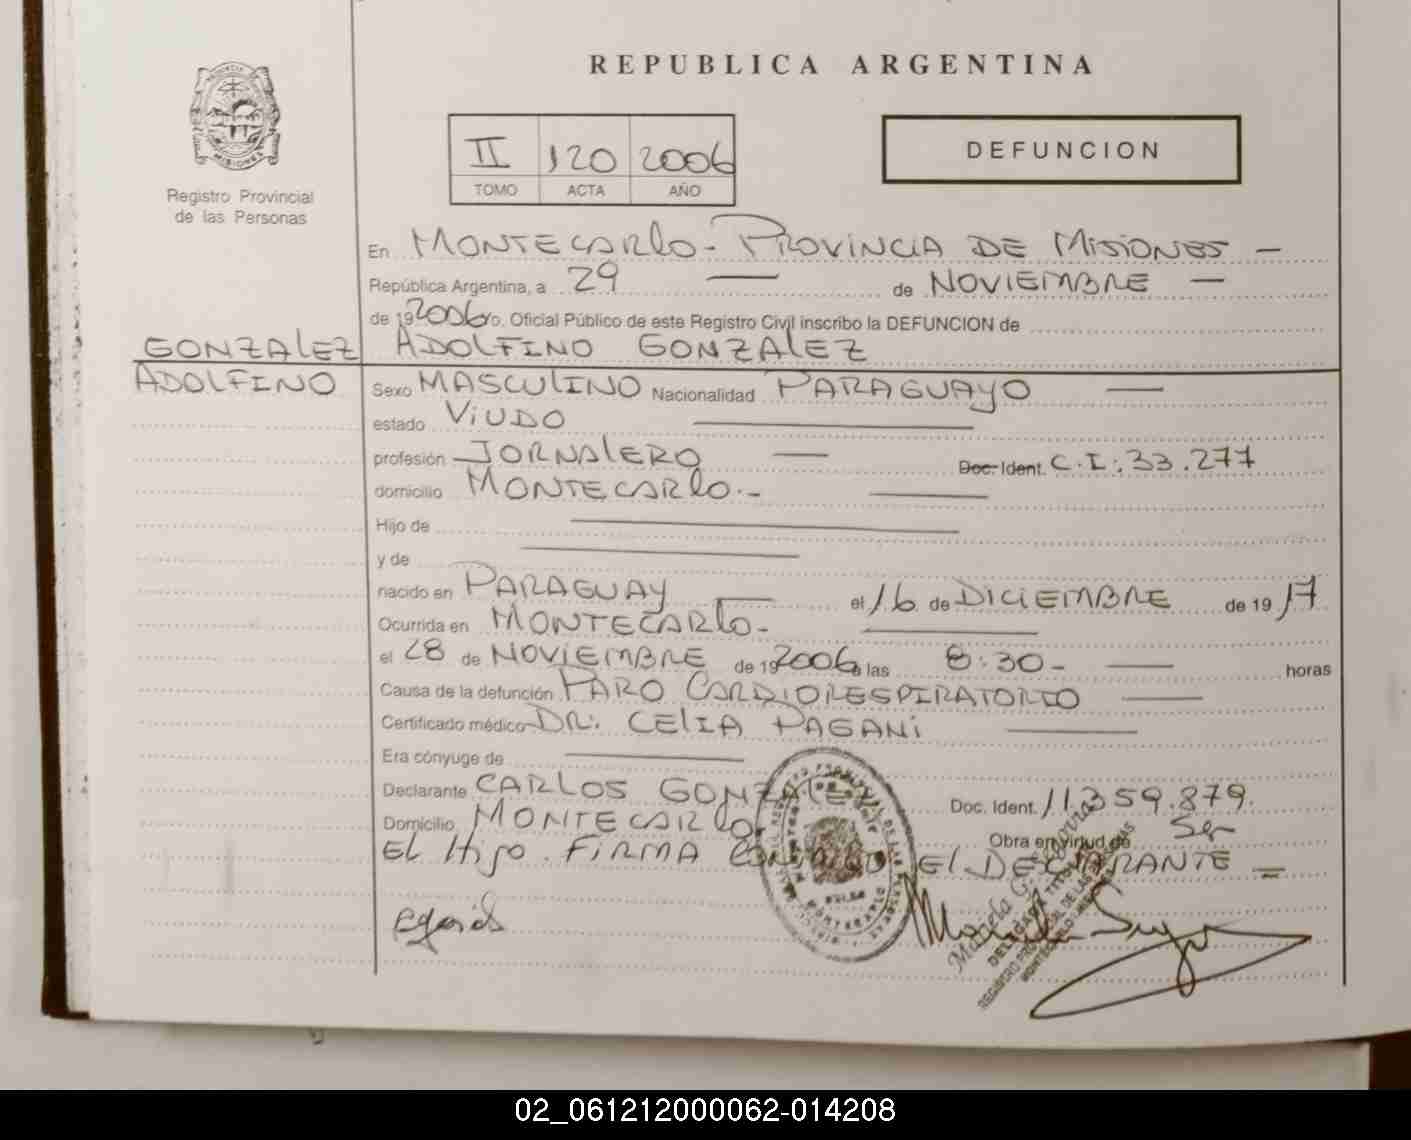 REPUBLICA ARGENTINA
PROVINCIA
MISIONES
Registro Provincial
de las Personas
II 120 2006
TOMO ACTA AÑO
DEFUNCION
En MONTECARLO - PROVINCIA DE MISIONES -
República Argentina, a 29 — de NOVIEMBRE —
de 192006 yo, Oficial Público de este Registro Civil inscribo la DEFUNCION de
GONZALEZ ADOLFINO GONZALEZ
ADOLFINO Sexo MASCULINO Nacionalidad PARAGUAYO —
estado VIUDO —
profesión JORNALERO — Doc. Ident. C.I: 33.277
domicilio MONTECARLO.- —
Hijo de —
y de —
nacido en PARAGUAY — el 16 de DICIEMBRE de 19 17
Ocurrida en MONTECARLO- —
el 28 de NOVIEMBRE de 192006 a las 8:30- — horas
Causa de la defunción PARO CARDIORESPIRATORIO —
Certificado médico DR: CELIA PAGANI —
Era cónyuge de —
Declarante CARLOS GONZALEZ Doc. Ident. 11.359.879.
Domicilio MONTECARLO. Obra en virtud de Ser
EL HIJO. FIRMA CONMIGO EL DECLARANTE =
MONTECARLO
02_061212000062-014208